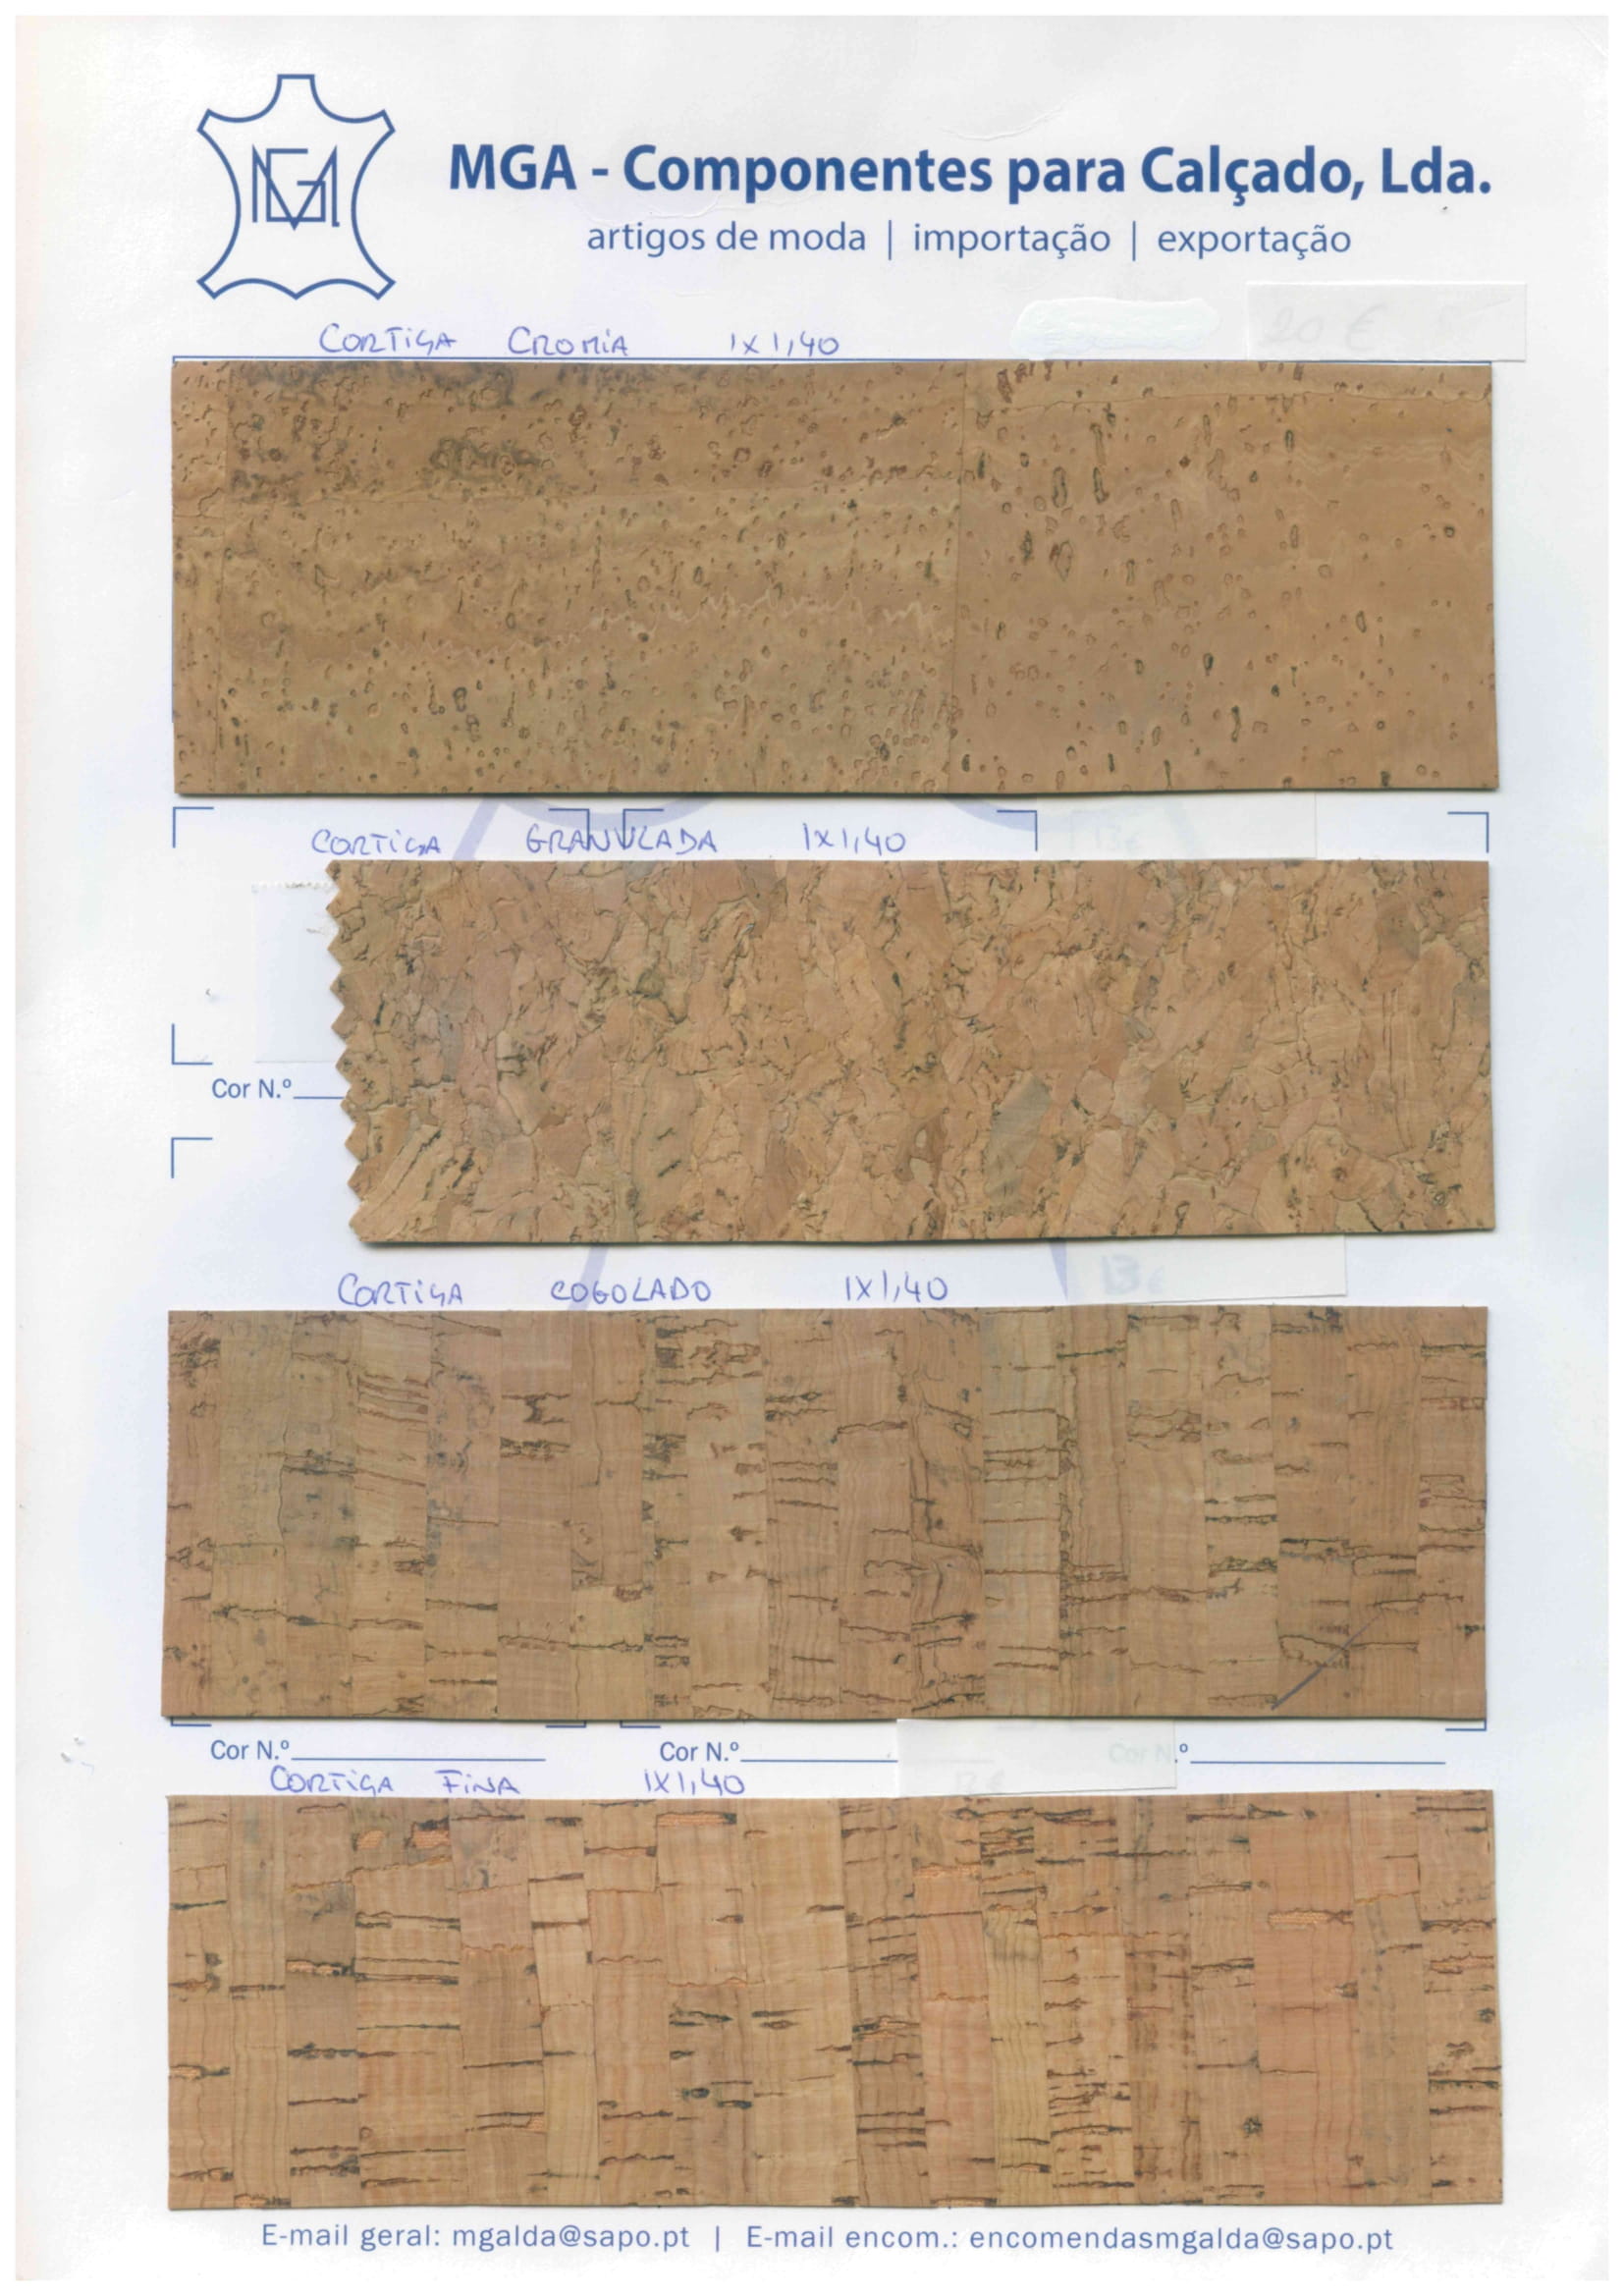 MGA
MGA - Componentes para Calçado, Lda.
artigos de moda | importação | exportação
20 €
CORTIÇA CROMIA 1X1,40
CORTIÇA GRANULADA 1X1,40
13€
Cor N.º
CORTIÇA COGOLADO 1X1,40
13€
Cor N.º Cor N.º Cor N.º
CORTIÇA FINA 1X1,40
E-mail geral: mgalda@sapo.pt | E-mail encom.: encomendasmgalda@sapo.pt